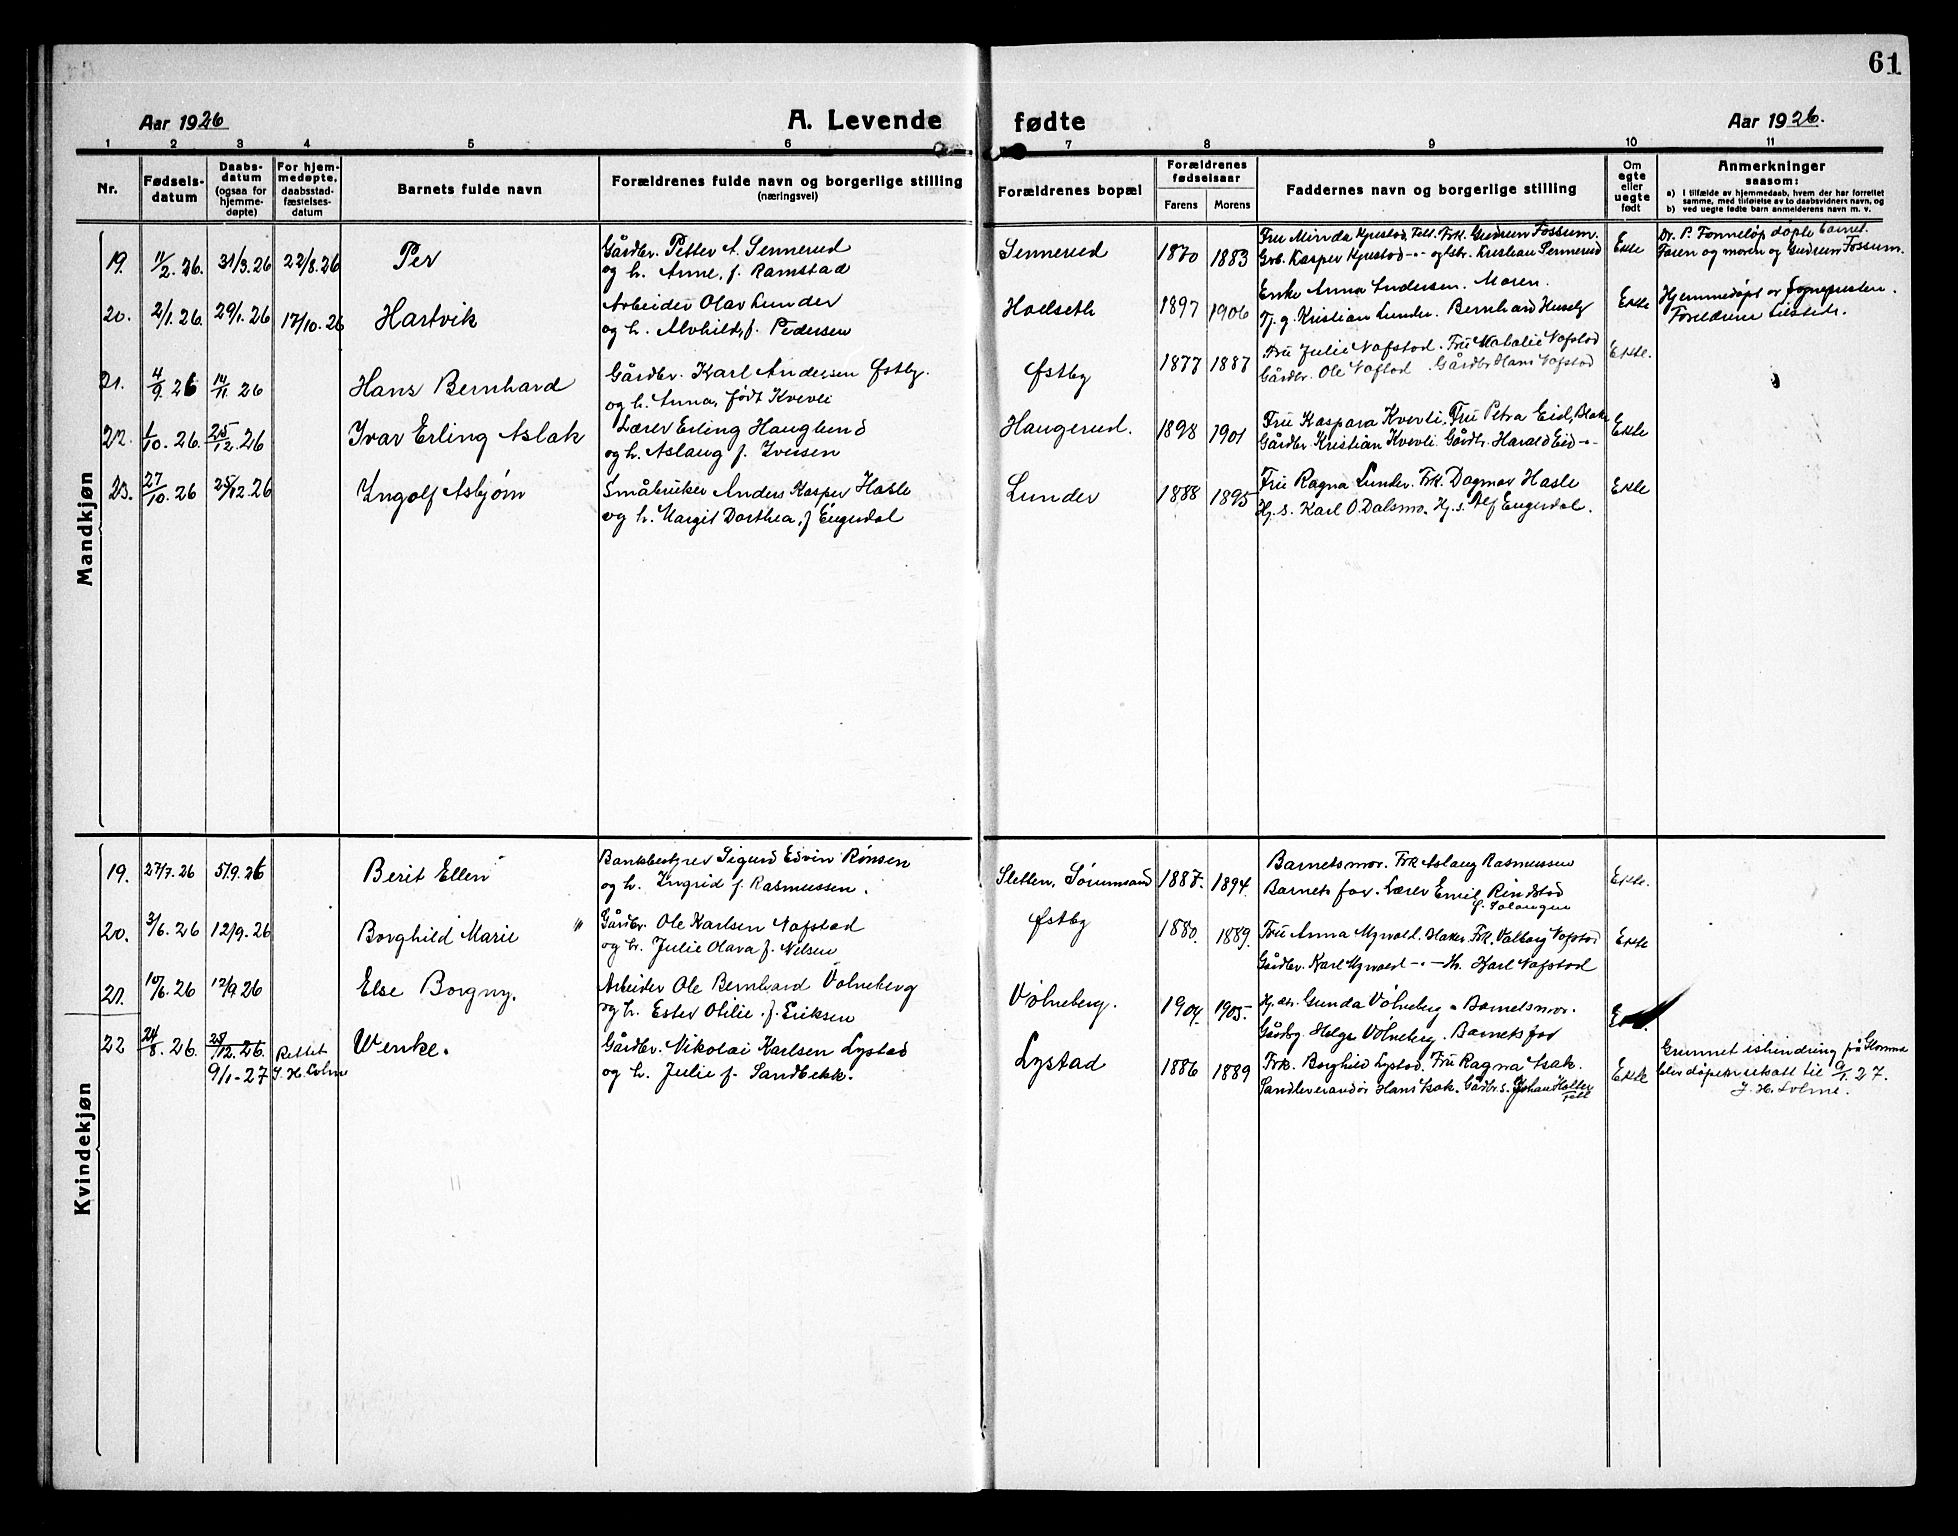 61
Aar 1926
A. Levende
fødte
Aar 1926.
1 2 3 4 5 6 7 8 9 10 11
Nr.
Fødsels-
datum
Daabs-
datum
(ogsaa for
hjemme-
døpte)
For hjem-
medøpte,
daabsstad-
fæstelses-
datum
Barnets fulde navn
Forældrenes fulde navn og borgerlige stilling
(næringsvei)
Forældrenes bopæl
Forældrenes
fødselsaar
Farens Morens
Faddernes navn og borgerlige stilling
Om
egte
eller
uegte
født
Anmerkninger
saasom:
a) I tilfælde av hjemmedaab, hvem der har forrettet
samme, med tilføielse av to daabsvidners navn, og
b) ved uegte fødte barn anmelderens navn m. v.
Mandkjøn
19. 11/2. 26. 31/3. 26 22/8. 26 Per
Gårdbr. Petter A. Sennerud
og h. Anne, f. Ramstad
Sennerud 1870 1883
Fru Minda Kjustad, Fet. Frk. Gudrun Fossum.
Grb. Kasper Kjustad -"- og Gbr. Kristian Sennerud
Ekte
Dr. P. Fonneløp døpte barnet.
Faren og moren og Gudrun Fossum.
20. 2/1. 26. 29/1. 26 17/10. 26 Hartvik
Arbeider Olav Lunder
og h. Alvhild, f. Pedersen
Holseth 1897 1906
Enke Anna Andersen. Moren.
Tj. g. Kristian Lunder. Bernhard
Ekte
Hjemmedøpt av sognepresten.
Foreldrene tilstede.
21. 4/9. 26 14/11 26 Hans Bernhard
Gårdbr. Karl Andersen Østby.
og h. Anna, født Kvevli
Østby 1877 1887
Fru Julie Nafstad. Fru Mathalie Nafstad
Gårdbr. Ole Nafstad Gårdbr Hans Nafstad
Ekte.
22. 1/10. 26. 25/12. 26 Ivar Erling Aslak
Lærer Erling Hauglund
og h. Aslaug f. Iversen
Haugerud. 1898 1901
Fru Kaspara Kvevli, Fru Petra Eid, Blaker
Gårdbr. Kristian Kvevli. Gårdbr. Harald Eid -"-
Ekte
23. 27/10. 26 25/12. 26 Ingolf Asbjørn
Småbruker Anders Kasper Hasle
og h. Margit Dorthea, f Engerdal
Lunder 1888 1895
Fru Ragna Lunder. Frk. Dagmar Hasle
Hj. s. Karl O. Dalsmo. Hj. s. Alf Engerdal.
Ekte
Kvindekjøn
19. 27/7. 26 5/9. 26 Berit Ellen
Bankbestyrer Sigurd Edvin Rønsen
og h. Ingrid f. Rasmussen.
Sletten, Sørumsand 1887. 1894.
Barnets mor. Frk Aslaug Rasmussen
Barnets far. Lærer Emil Rindstad
Ekte.
20. 3/6. 26 12/9. 26 Borghild Marie "
Gårdbr. Ole Karlsen Nafstad
og h. Julie Olava f. Nilsen
Østby 1880. 1889.
Fru Anna Myrvold. Blaker. Frk. Valborg Nafstad
Gårdbr. Karl Myrvold -"- Hr. Karl Nafstad
Ekte
21. 10/6. 26 12/9 26 Else Borgny.
Arbeider Ole Bernhard Vølneberg
og h. Ester Otilie. f. Eriksen
Vølneberg. 1904. 1905.
Hj. dtr. Gunda Vølneberg. Barnets mor.
Gårdbr. Helge Vølneberg. Barnets far
22 24/8. 26. 25/12. 26. 9/1-27 Rettet J. H. Lolme Wenke.
Gårdbr. Nikolai Karlsen Lystad
og h. Julie f. Sandbekk.
Lystad 1886 1889
Frk. Borghild Lystad. Fru Ragna Isak.
Sandleverandør Hans Isak. Gårdbr. s. Johan Halter
Fett
Ekte
Grunnet ishindring på Glomma
blev dåpen utsatt til 9/1. 27.
J. H. Lolme.